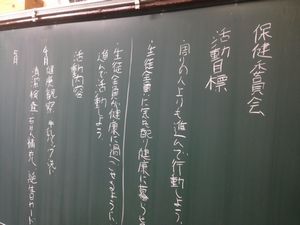 保健委員会
活動目標
・周りの人よりも進んで行動しよう。
・生徒全員に気を配り健康に暮らせ
・生徒全員が健康に過ごせるように、
進んで活動しよう
活動内容
4月 健康観察
清潔検査
5月